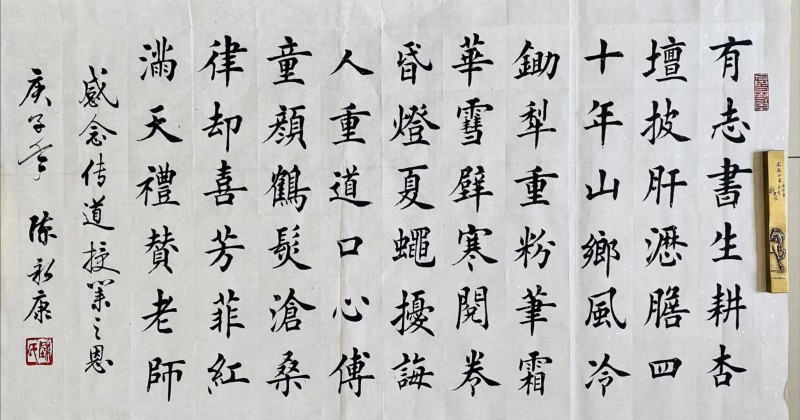 有志書生耕杏
壇披肝瀝膽四
十年山鄉風冷
鋤犁重粉筆霜
華雪壁寒閱卷
昏燈夏蠅擾誨
人重道口心傅
童顏鶴髮滄桑
律却喜芳菲紅
滿天禮贊老師
感念传道授業之恩
庚子冬 陈永康